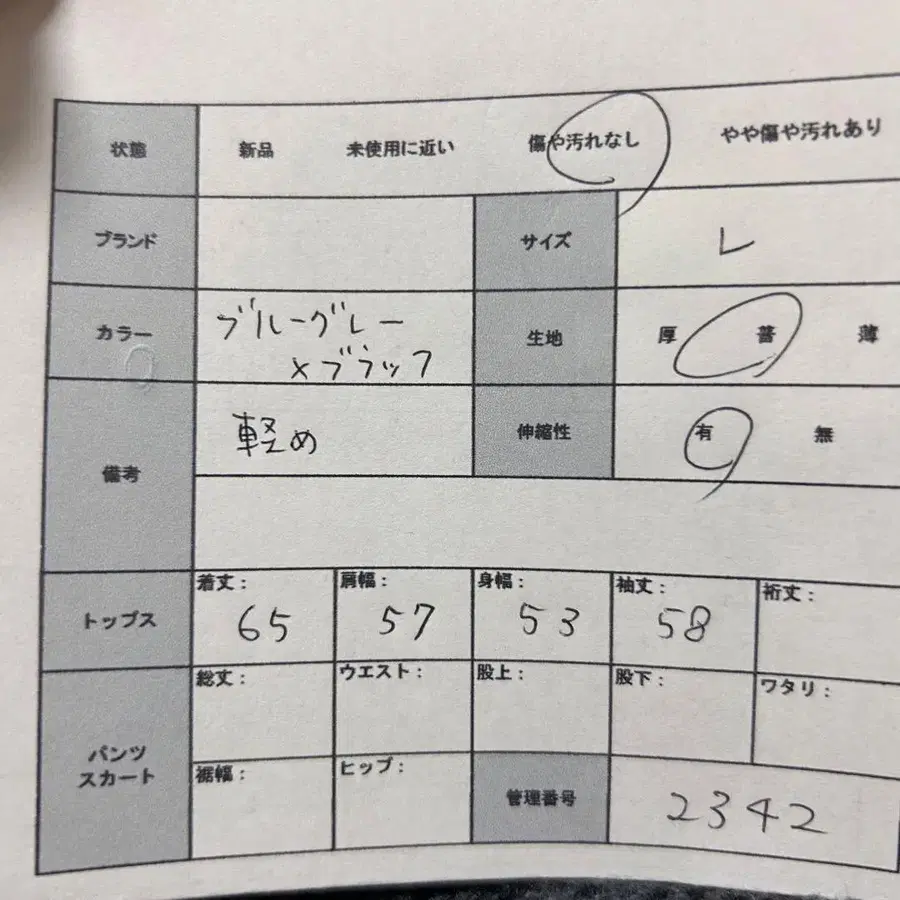 状態 新品 未使用に近い 傷や汚れなし やや傷や汚れあり
ブランド サイズ L
カラー ブルーグレー
×ブラック
生地 厚 普 薄
備考 軽め
伸縮性 有 無
トップス 着丈: 65 肩幅: 57 身幅: 53 袖丈: 58 裄丈:
パンツ
スカート
総丈: ウエスト: 股上: 股下: ワタリ:
裾幅: ヒップ: 管理番号 2342